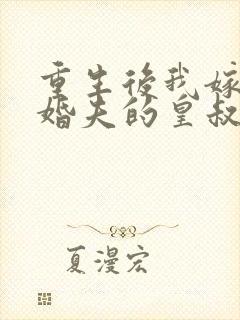 重生後我嫁
婚夫的皇叔
夏漫宏